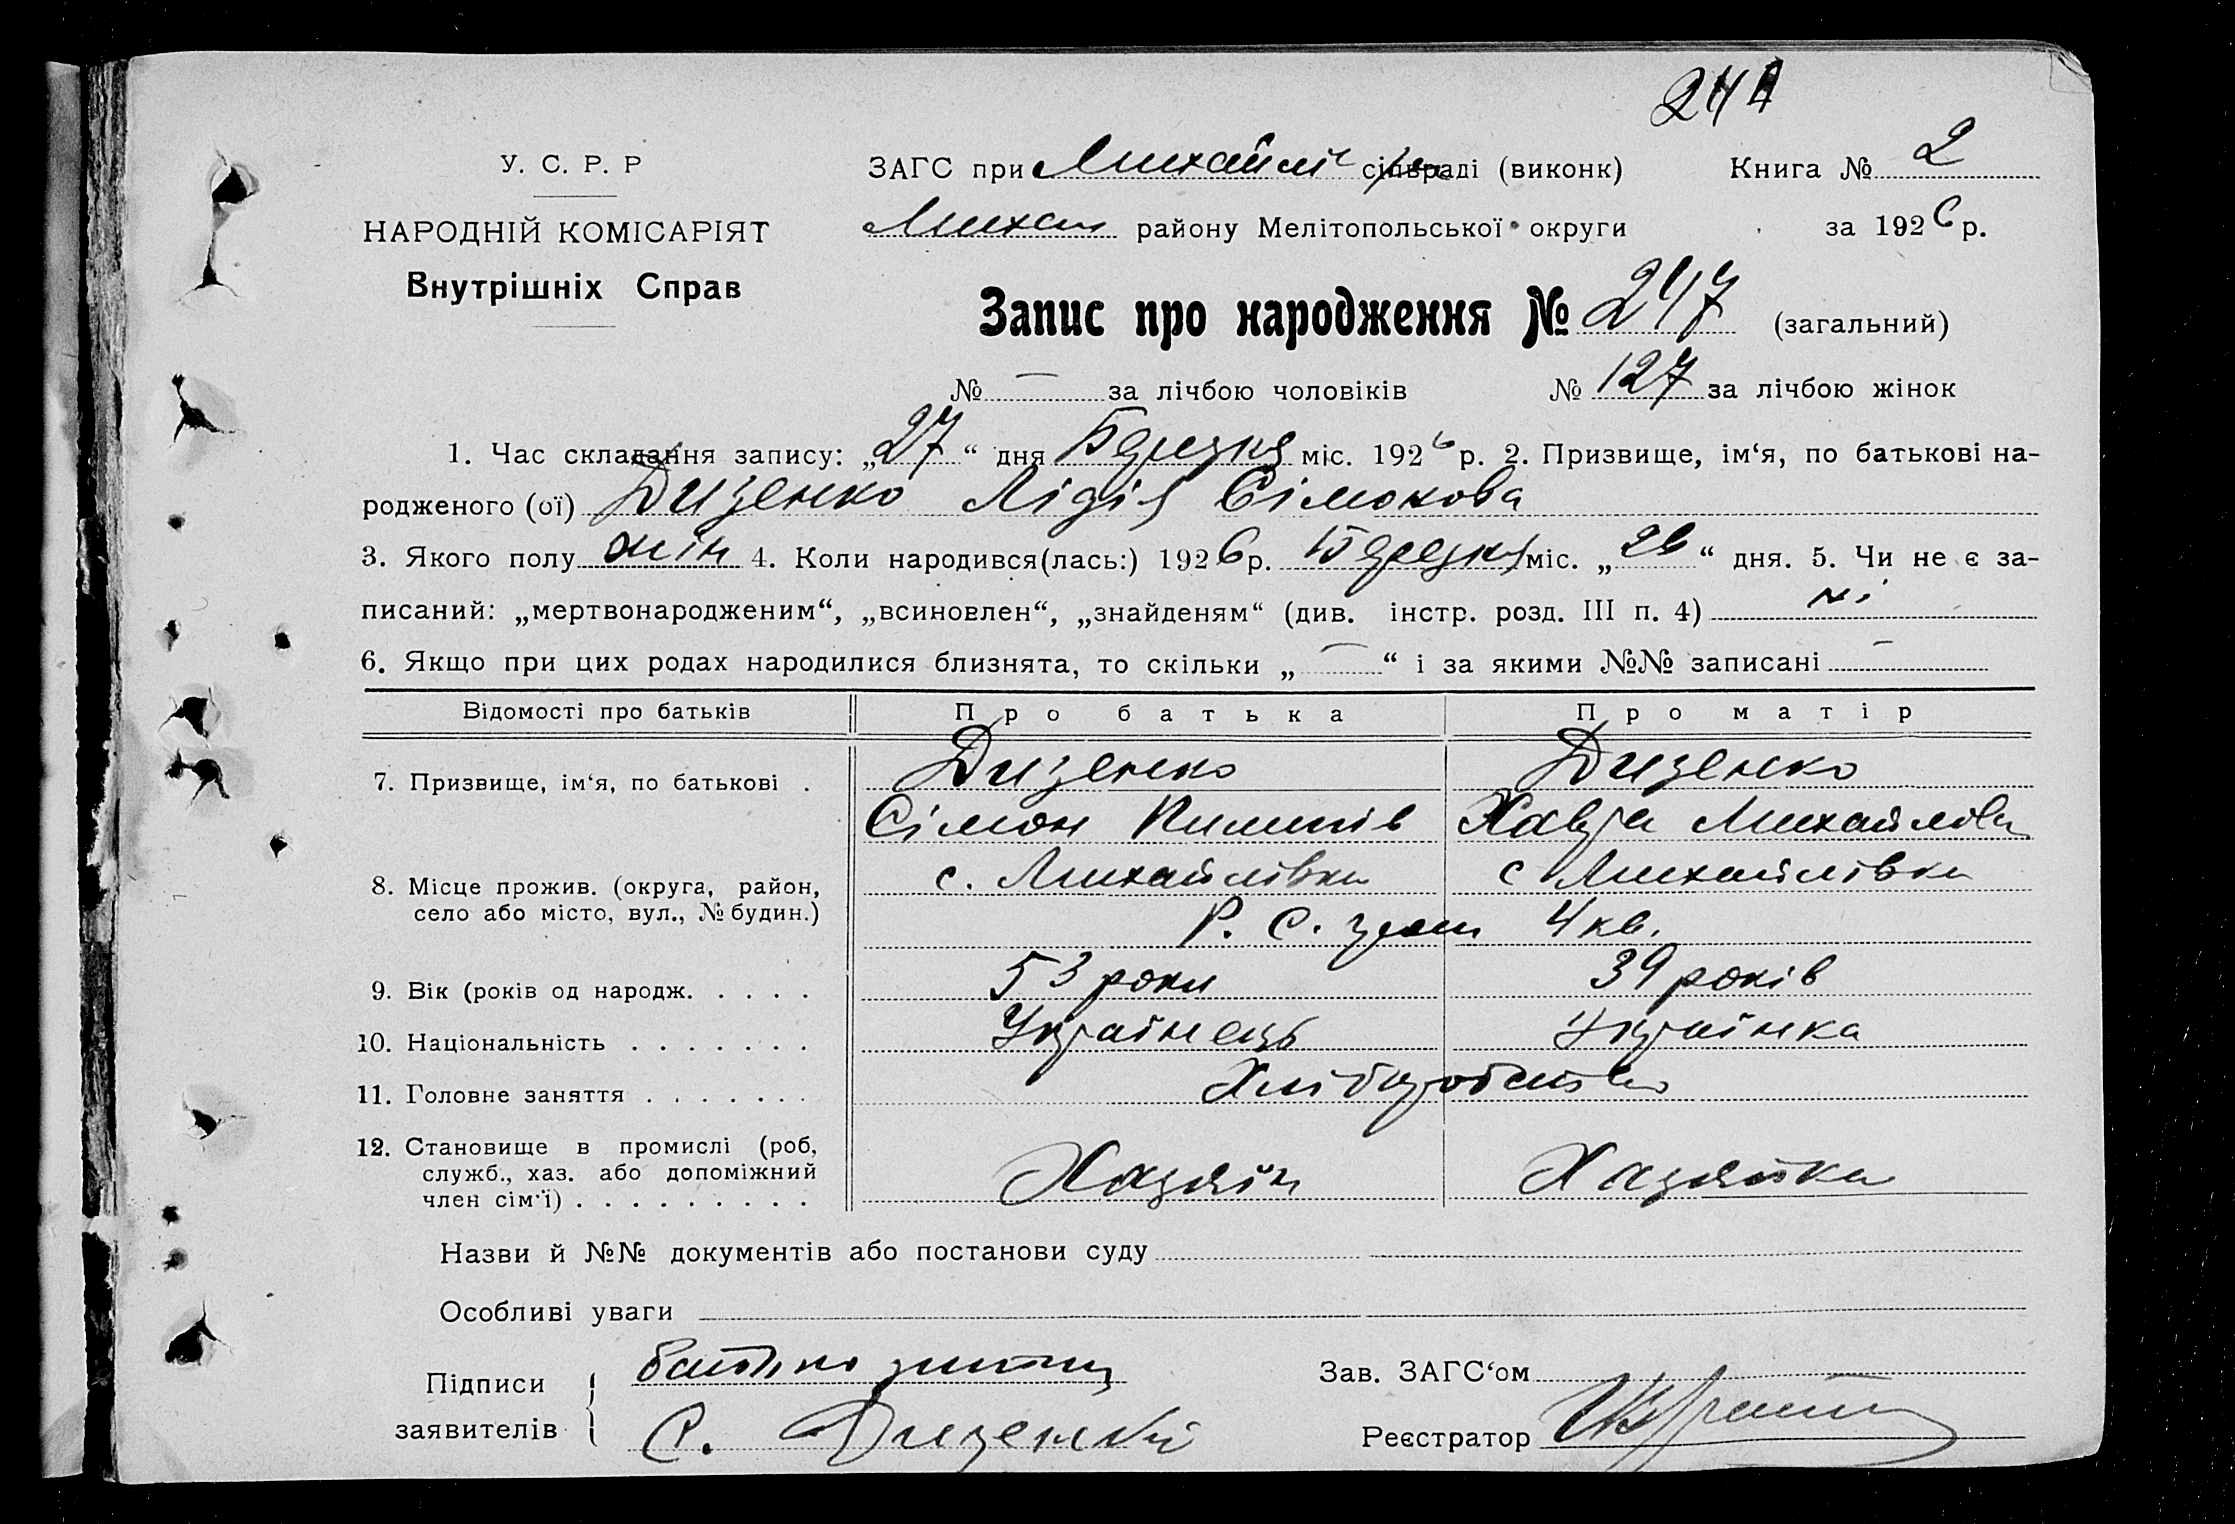 244
У. С. Р. Р
НАРОДНІЙ КОМІСАРІЯТ
Внутрішніх Справ
ЗАГС при Михайлі сільраді (виконк) Книга № 2
Михай району Мелітопольської округи за 1926 р.
Запис про народження № 247 (загальний)
№ — за лічбою чоловіків № 127 за лічбою жінок
1. Час складання запису: „27“ дня Березня міс. 1926 р. 2. Призвище, ім‘я, по батькові на-
родженого (ої) Дизенко Лідія Сімонова
3. Якого полу жін 4. Коли народився(лась:) 1926 р. Березня міс. „26“ дня. 5. Чи не є за-
писаний: „мертвонародженим“, „всиновлен“, „знайденям“ (див. інстр. розд. III п. 4) ні
6. Якщо при цих родах народилися близнята, то скільки „—“ і за якими №№ записані —
Відомості про батьків Про батька Про матір
7. Призвище, ім‘я, по батькові . Дизенко Дизенко
Сімон Пилипів Михайлова
8. Місце прожив. (округа, район, с. Михайлівка с Михайлівка
село або місто, вул., № будин.) Р. С. 4 кв.
9. Вік (років од народж. . . . . 53 роки 39 років
10. Національність . . . . . . . Українець Українка
11. Головне заняття . . . . . . . Хліборобство
12. Становище в промислі (роб, Хазяїн Хазяйка
служб., хаз. або допоміжний
член сім‘ї) . . . . . . . . .
Назви й №№ документів або постанови суду
Особливі уваги
Підписи заявителів батько дитини
С. Дизенкій
Зав. ЗАГС‘ом
Реєстратор